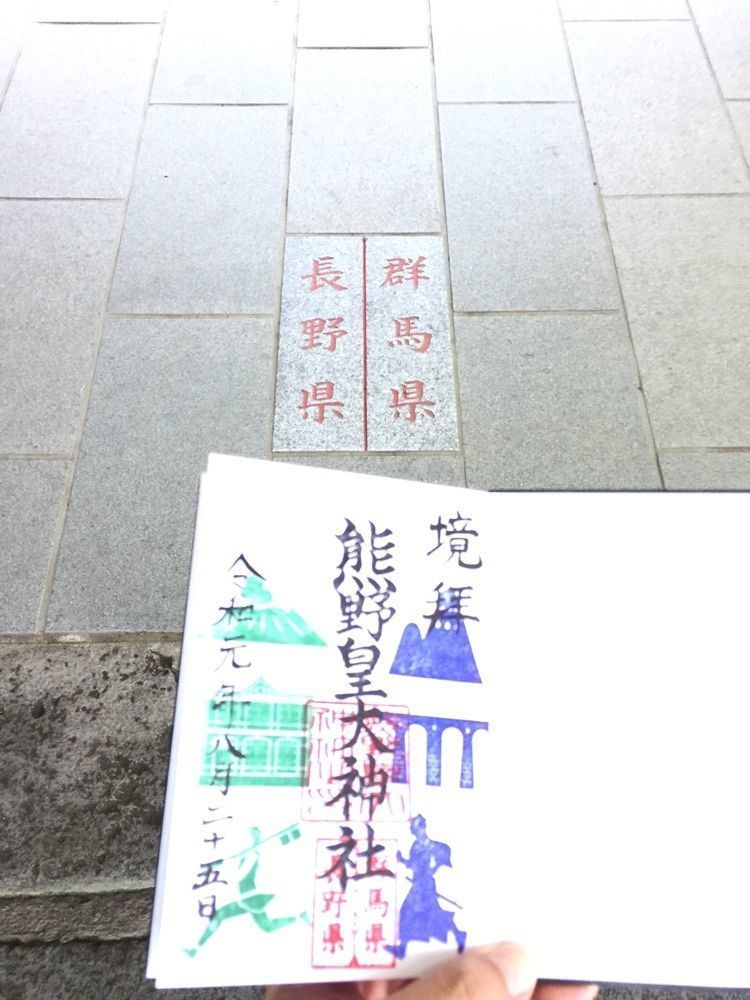 群馬県
長野県
境拜
熊野皇大神社
令和元年八月二十五日
群馬県
長野県